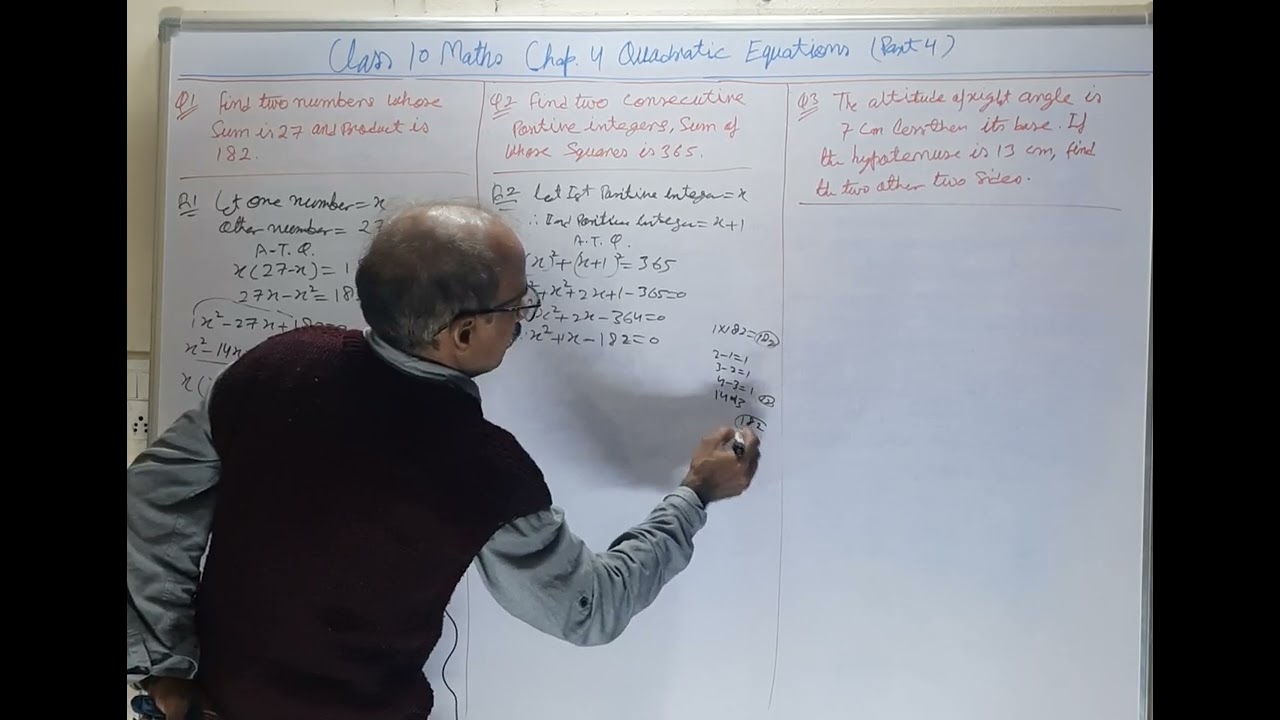 Class 10 Maths Chap. 4 Quadratic Equations (Part 4)
Q1 Find two numbers whose
Sum is 27 and Product is
182.
Q2 Find two consecutive
Positive integers, Sum of
whose Squares is 365.
Q3 The altitude of right angle is
7 cm less then its base. If
the hypotenuse is 13 cm, find
the two other two sides.
Let one number = x
Other number = 27
A.T.Q.
x(27-x) = 1
27x-x² = 18
1x²-27x+182
x²-14x
x(
Let Ist Positive Integer = x
∴ IInd Positive Integer = x+1
A.T.Q.
(x)²+(x+1)² = 365
²+x²+2x+1-365=0
x²+2x-364=0
x²+1x-182=0
1x182=182
2-1=1
3-2=1
4-3=1
14 13
182